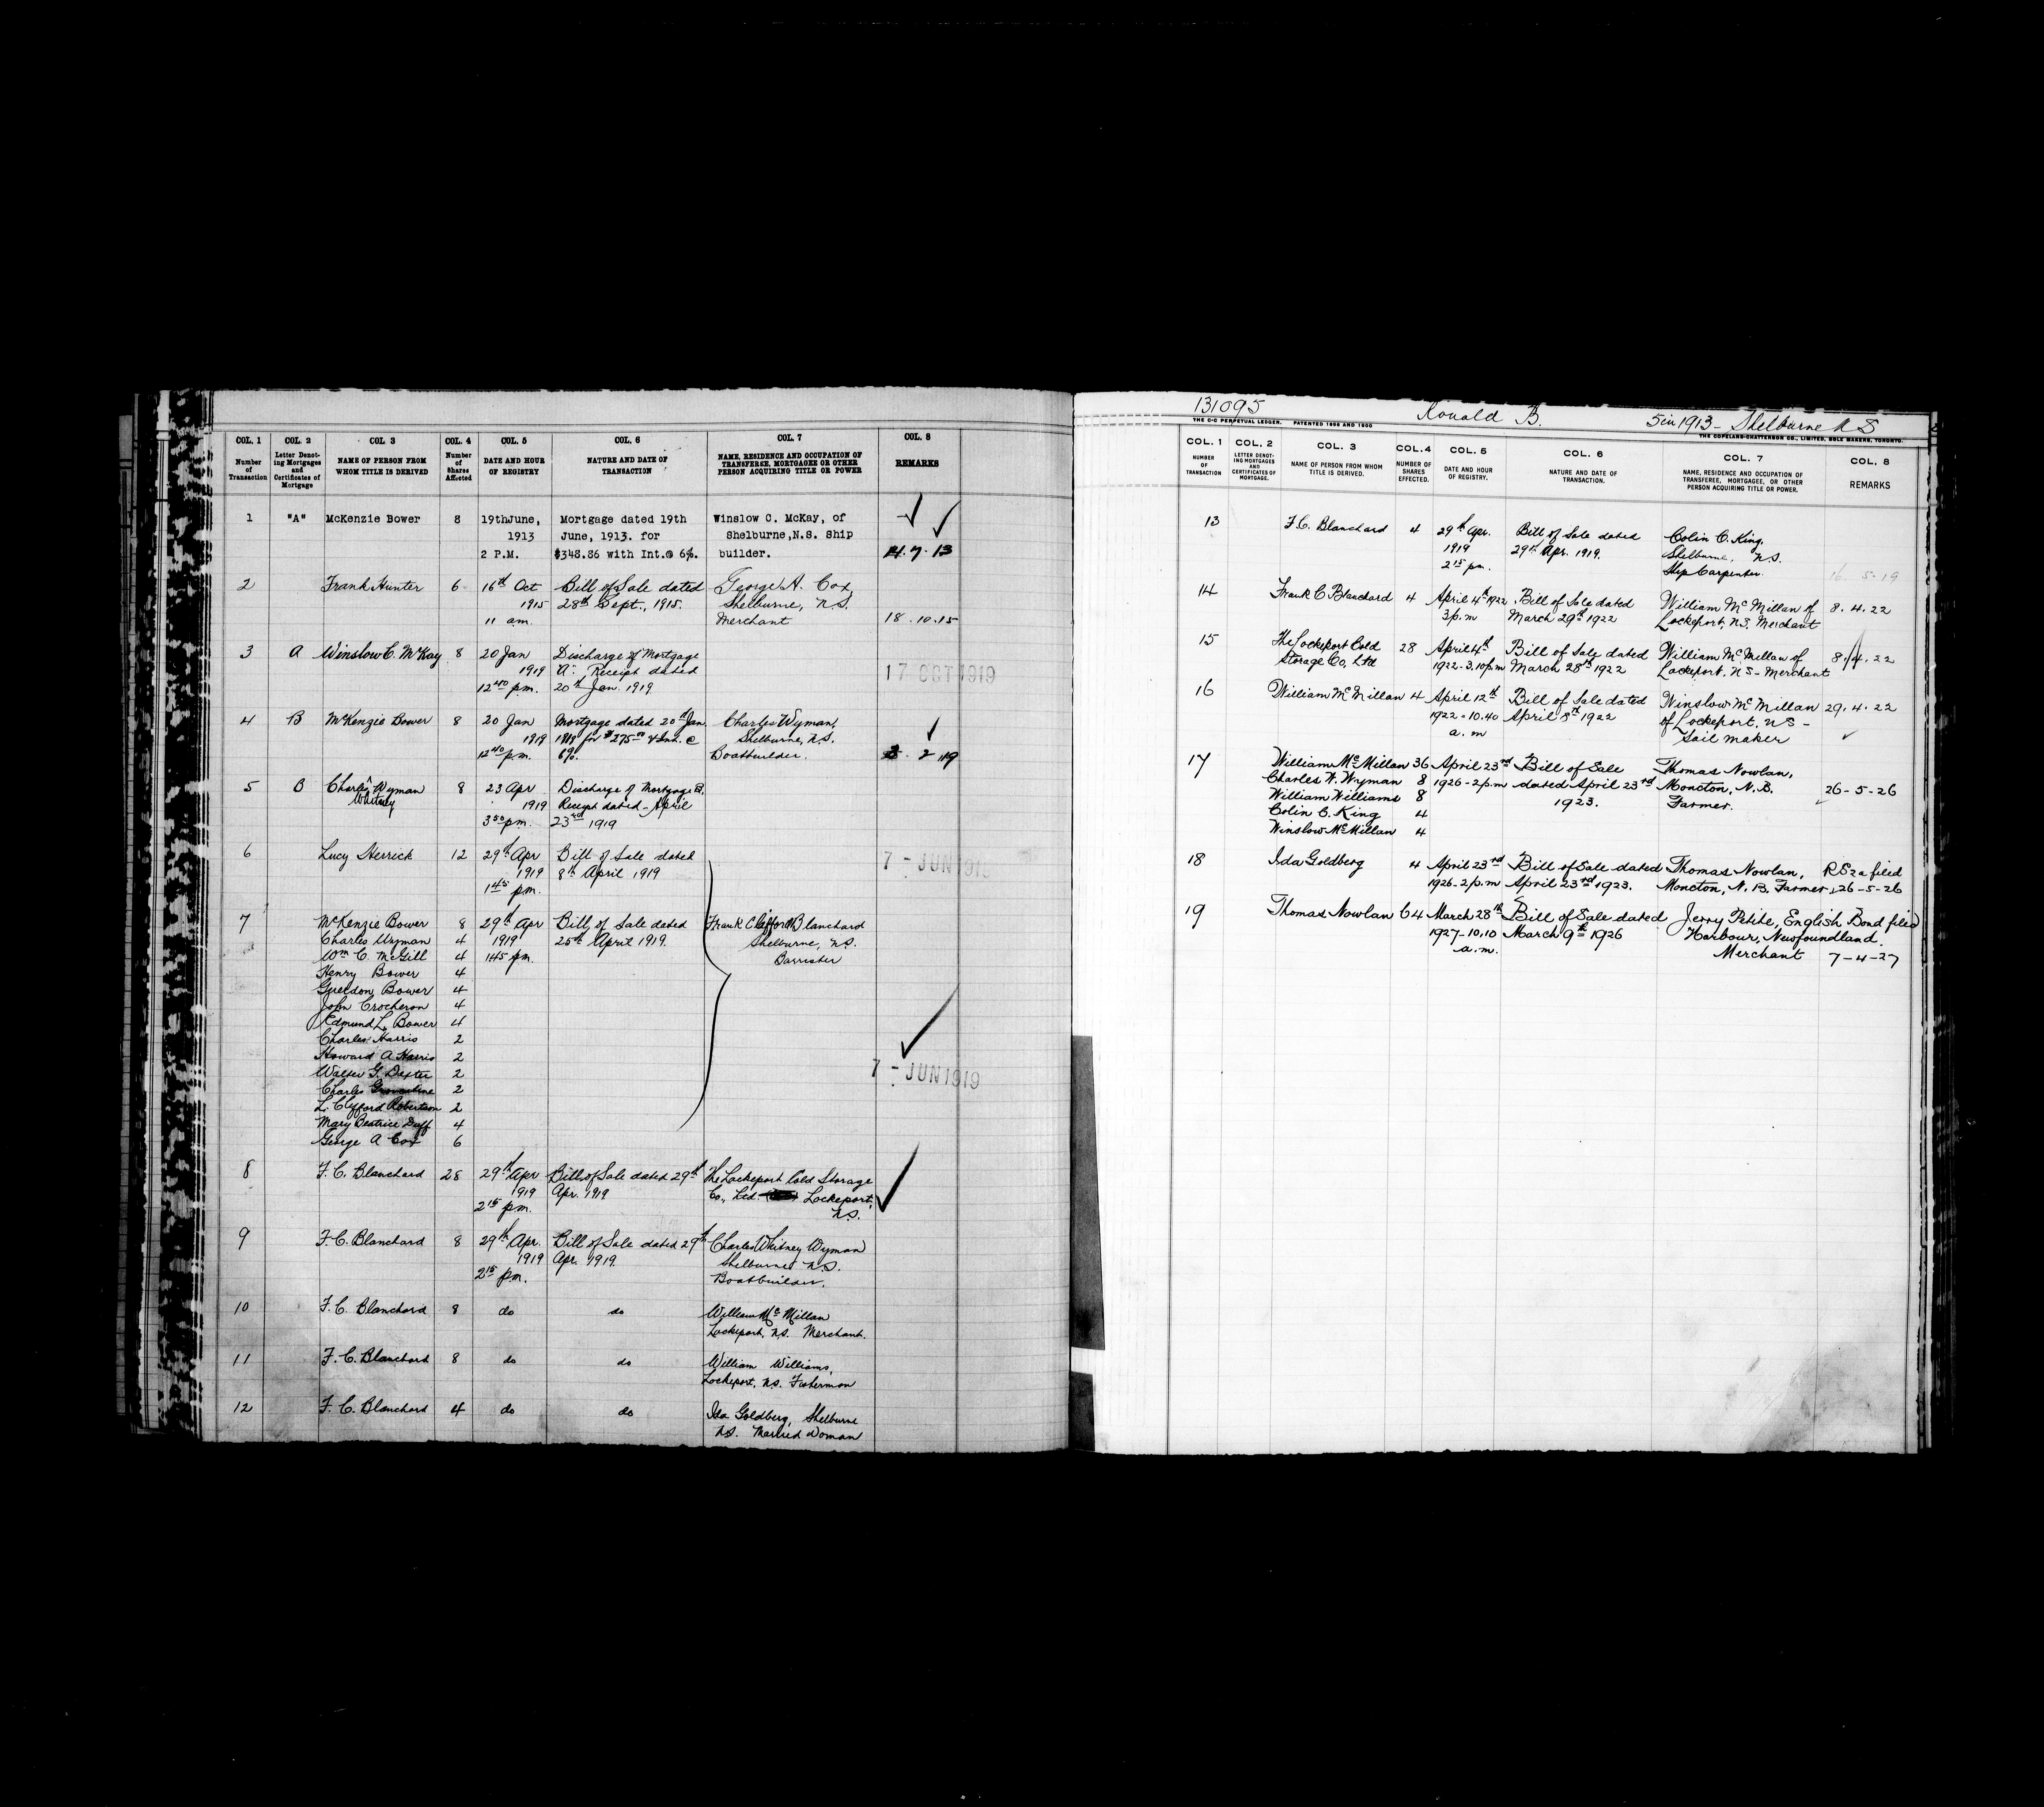 COL. 1 COL. 2 COL. 3 COL. 4 COL. 5 COL. 6 COL. 7 COL. 8
Number of Transaction
Letter Denoting Mortgages and Certificates of Mortgage
NAME OF PERSON FROM WHOM TITLE IS DERIVED
Number of Shares Affected
DATE AND HOUR OF REGISTRY
NATURE AND DATE OF TRANSACTION
NAME, RESIDENCE AND OCCUPATION OF TRANSFEREE, MORTGAGEE OR OTHER PERSON ACQUIRING TITLE OR POWER
REMARKS
1 "A" McKenzie Bower 8 19thJune, Mortgage dated 19th Winslow C. McKay, of
1913 June, 1913. for Shelburne,N.S. Ship
2 P.M. $348.86 with Int.@ 6%. builder. 14.7.13
2 Frank Hunter 6 16th Oct Bill of Sale dated George A. Cox,
1915 28th Sept., 1915. Shelburne, N.S.
11 am. Merchant 18.10.15
3 A Winslow C. McKay 8 20 Jan Discharge of Mortgage
1919 A. Receipt dated 17 OCT 1919
12 40 pm. 20th Jan. 1919
4 B McKenzie Bower 8 20 Jan Mortgage dated 20th Jan Charles Wyman,
1919 for $275.00 & Int. @ Shelburne, N.S.
12 40 pm. 6%. Boatbuilder. 2 19
5 B Charles Wyman 8 23 Apr Discharge of Mortgage B.
Whitney 1919 Receipt dated - April
3 50 pm. 23rd 1919
6 Lucy Herrick 12 29th Apr Bill of Sale dated 7 - JUN 1919
1919 8th April 1919
1 45 pm.
7 McKenzie Bower 8 29th Apr Bill of Sale dated Frank Clifford Blanchard
Charles Wyman 4 1919 25th April 1919. Shelburne, N.S.
Wm C. McGill 4 1 45 pm. Barrister
Henry Bower 4
Bower 4
John Crocheron 4
Edmund L. Bower 4
Charles Harris 2
Howard A Harris 2
Walter G. Dexter 2
Charles 2
L. Clifford Robertson 2
Mary Beatrice Duff 4
George A Cox 6
7 - JUN 1919
8 F. C. Blanchard 28 29th Apr Bill of Sale dated 29th The Lockeport Cold Storage
1919 Apr. 1919 Co., Ltd. Lockeport,
2 15 pm. N.S.
9 F. C. Blanchard 8 29th Apr. Bill of Sale dated 29th Charles Whitney Wyman
1919 Apr. 1919. Shelburne N.S.
2 15 pm. Boatbuilder.
10 F. C. Blanchard 8 do do William McMillan
Lockeport, N.S. Merchant.
11 F. C. Blanchard 8 do do William Williams,
Lockeport, N.S. Fisherman
12 F. C. Blanchard 4 do do Ida Goldberg, Shelburne
N.S. Married Woman
131095 Ronald B. 5 in 1913 - Shelburne N S
THE C-C PERPETUAL LEDGER. PATENTED 1898 AND 1900
THE COPELAND-CHATTERSON CO., LIMITED, SOLE MAKERS, TORONTO.
COL. 1 COL. 2 COL. 3 COL. 4 COL. 5 COL. 6 COL. 7 COL. 8
NUMBER OF TRANSACTION
LETTER DENOTING MORTGAGES AND CERTIFICATES OF MORTGAGE.
NAME OF PERSON FROM WHOM TITLE IS DERIVED.
NUMBER OF SHARES EFFECTED.
DATE AND HOUR OF REGISTRY.
NATURE AND DATE OF TRANSACTION.
NAME, RESIDENCE AND OCCUPATION OF TRANSFEREE, MORTGAGEE, OR OTHER PERSON ACQUIRING TITLE OR POWER.
REMARKS
13 F. C. Blanchard 4 29th Apr. Bill of Sale dated Colin C. King,
1919 29th Apr. 1919. Shelburne, N.S.
2 15 pm. Ship Carpenter. 16. 5-19
14 Frank C Blanchard 4 April 4th 1922 Bill of Sale dated William McMillan of 8.4.22
3 p.m March 29th 1922 Lockeport, N.S. Merchant
15 The Lockeport Cold 28 April 4th Bill of Sale dated William McMillan of 8.4.22
Storage Co, Ltd 1922-3.10pm March 28th 1922 Lockeport, N S - Merchant
16 William McMillan 4 April 12th Bill of Sale dated Winslow McMillan 29.4.22
1922-10.40 April 8th 1922 of Lockeport, N S -
a.m Sail maker
17 William McMillan 36 April 23rd Bill of Sale Thomas Nowlan,
Charles W. Wyman 8 1926-2p.m dated April 23rd Moncton, N.B. 26-5-26
William Williams 8 1923. Farmer.
Colin C. King 4
Winslow McMillan 4
18 Ida Goldberg 4 April 23rd Bill of Sale dated Thomas Nowlan, filed
1926-2p.m April 23rd 1923. Moncton, N. B. Farmer 26-5-26
19 Thomas Nowlan 64 March 28th Bill of Sale dated Jerry Petite, English Bond filed
1927-10.10 March 9th 1926 Harbour, Newfoundland.
a.m. Merchant 7-4-27